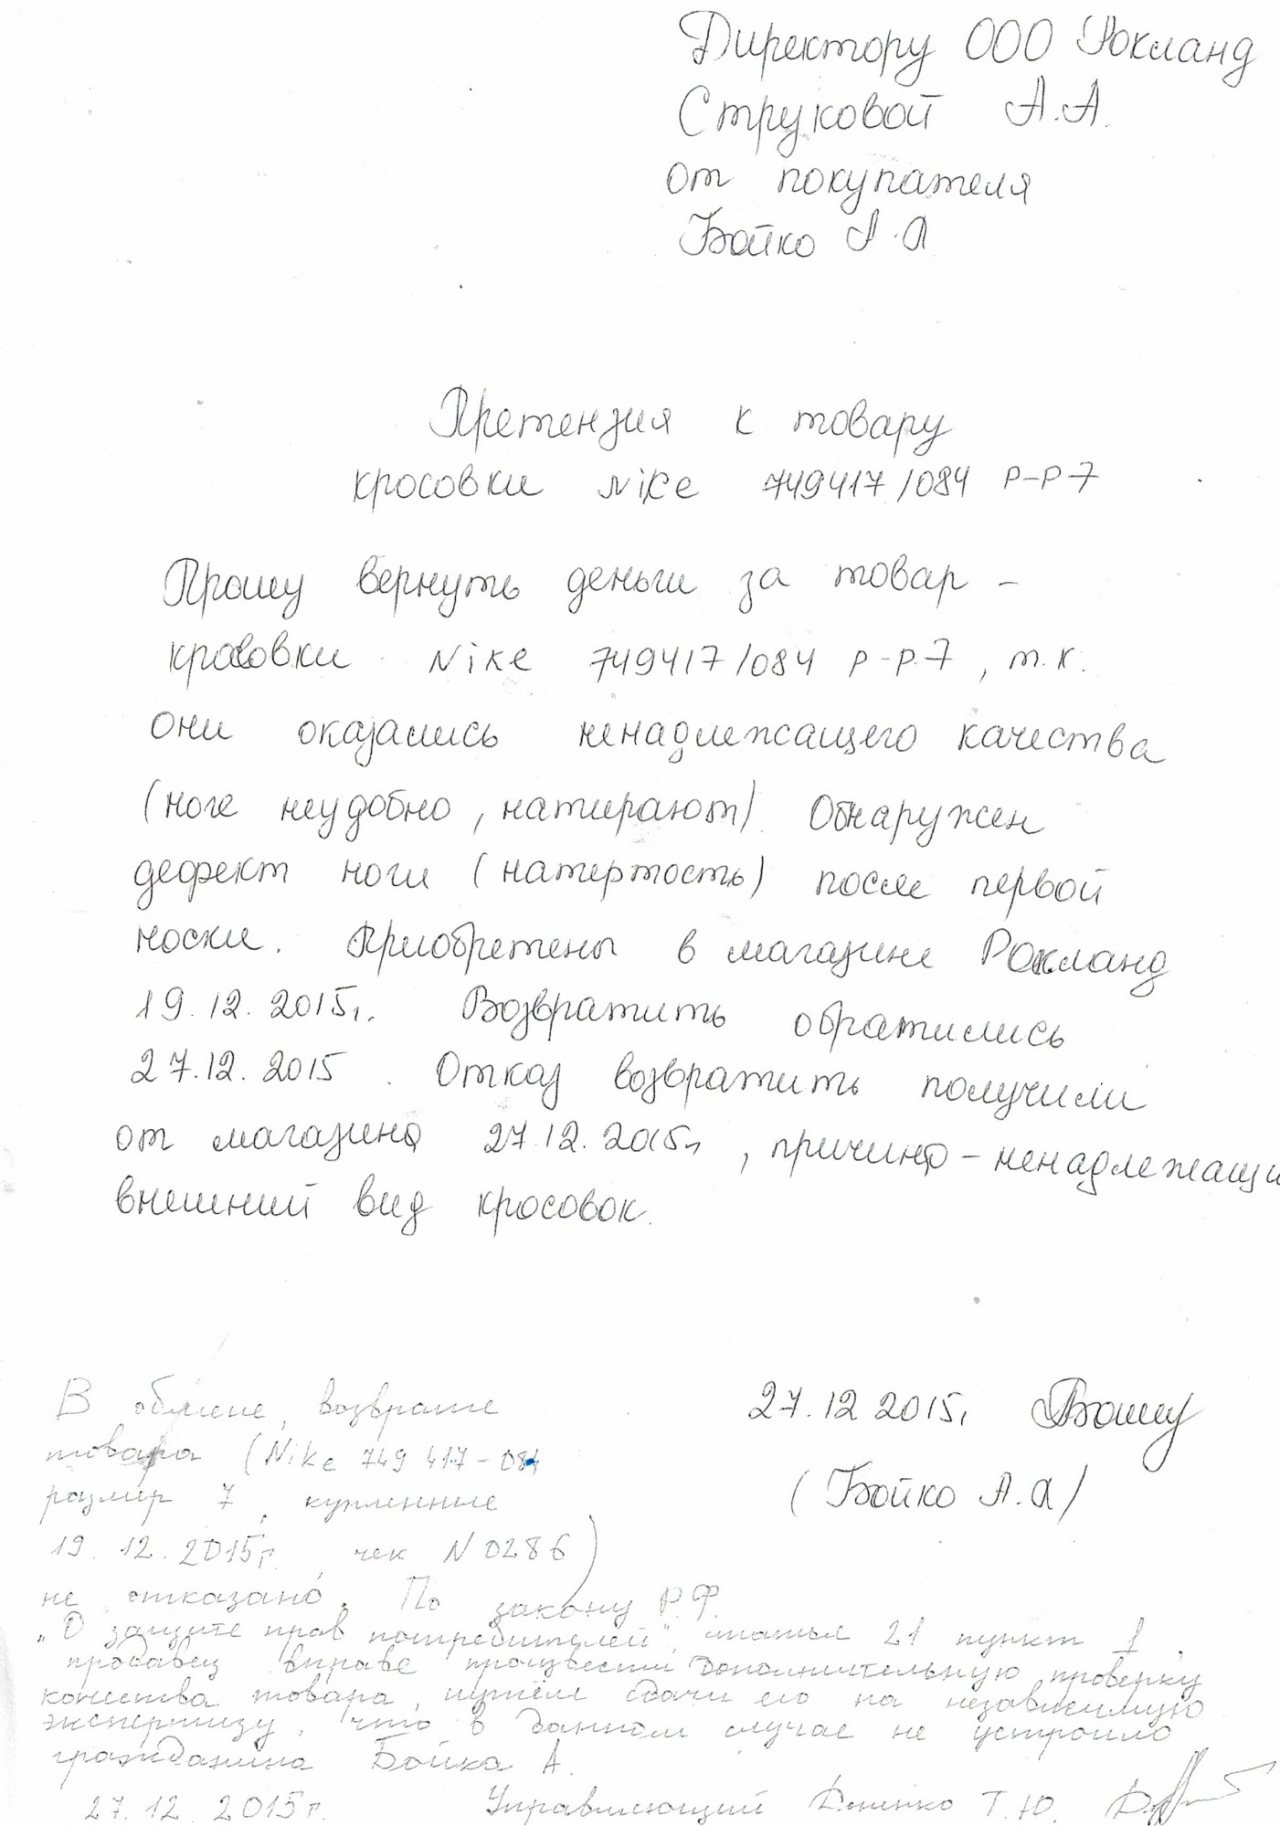 Директору ООО Рокланд
Струковой А.А.
от покупателя
Бойко А.А
Претензия к товару
кросовки Nike 749417/084 р-р 7
Прошу вернуть деньги за товар -
кросовки Nike 749417/084 р-р.7, т.к.
они оказались ненадлежащего качества
(ноге неудобно, натирают). Обнаружен
дефект ноги (натертость) после первой
носки. Приобретены в магазине Рокланд
19.12.2015г. Возвратить обратились
27.12.2015. Отказ возвратить получили
от магазина 27.12.2015г, причина - ненадлежащи
внешний вид кросовок.
27.12 2015г
(Бойко А.А)
В обмене, возврате
товара (Nike 749 417-084
размер 7, купленные
19.12.2015г. чек N 0286)
не отказано. По закону Р.Ф.
"О защите прав потребителей", статья 21 пункт 1,
продавец вправе произвести дополнительную проверку
качества товара, путём сдачи его на независимую
экспертизу, что в данном случае не устроило
гражданина Бойка А.
27.12.2015г. Управляющий Т.Ю.